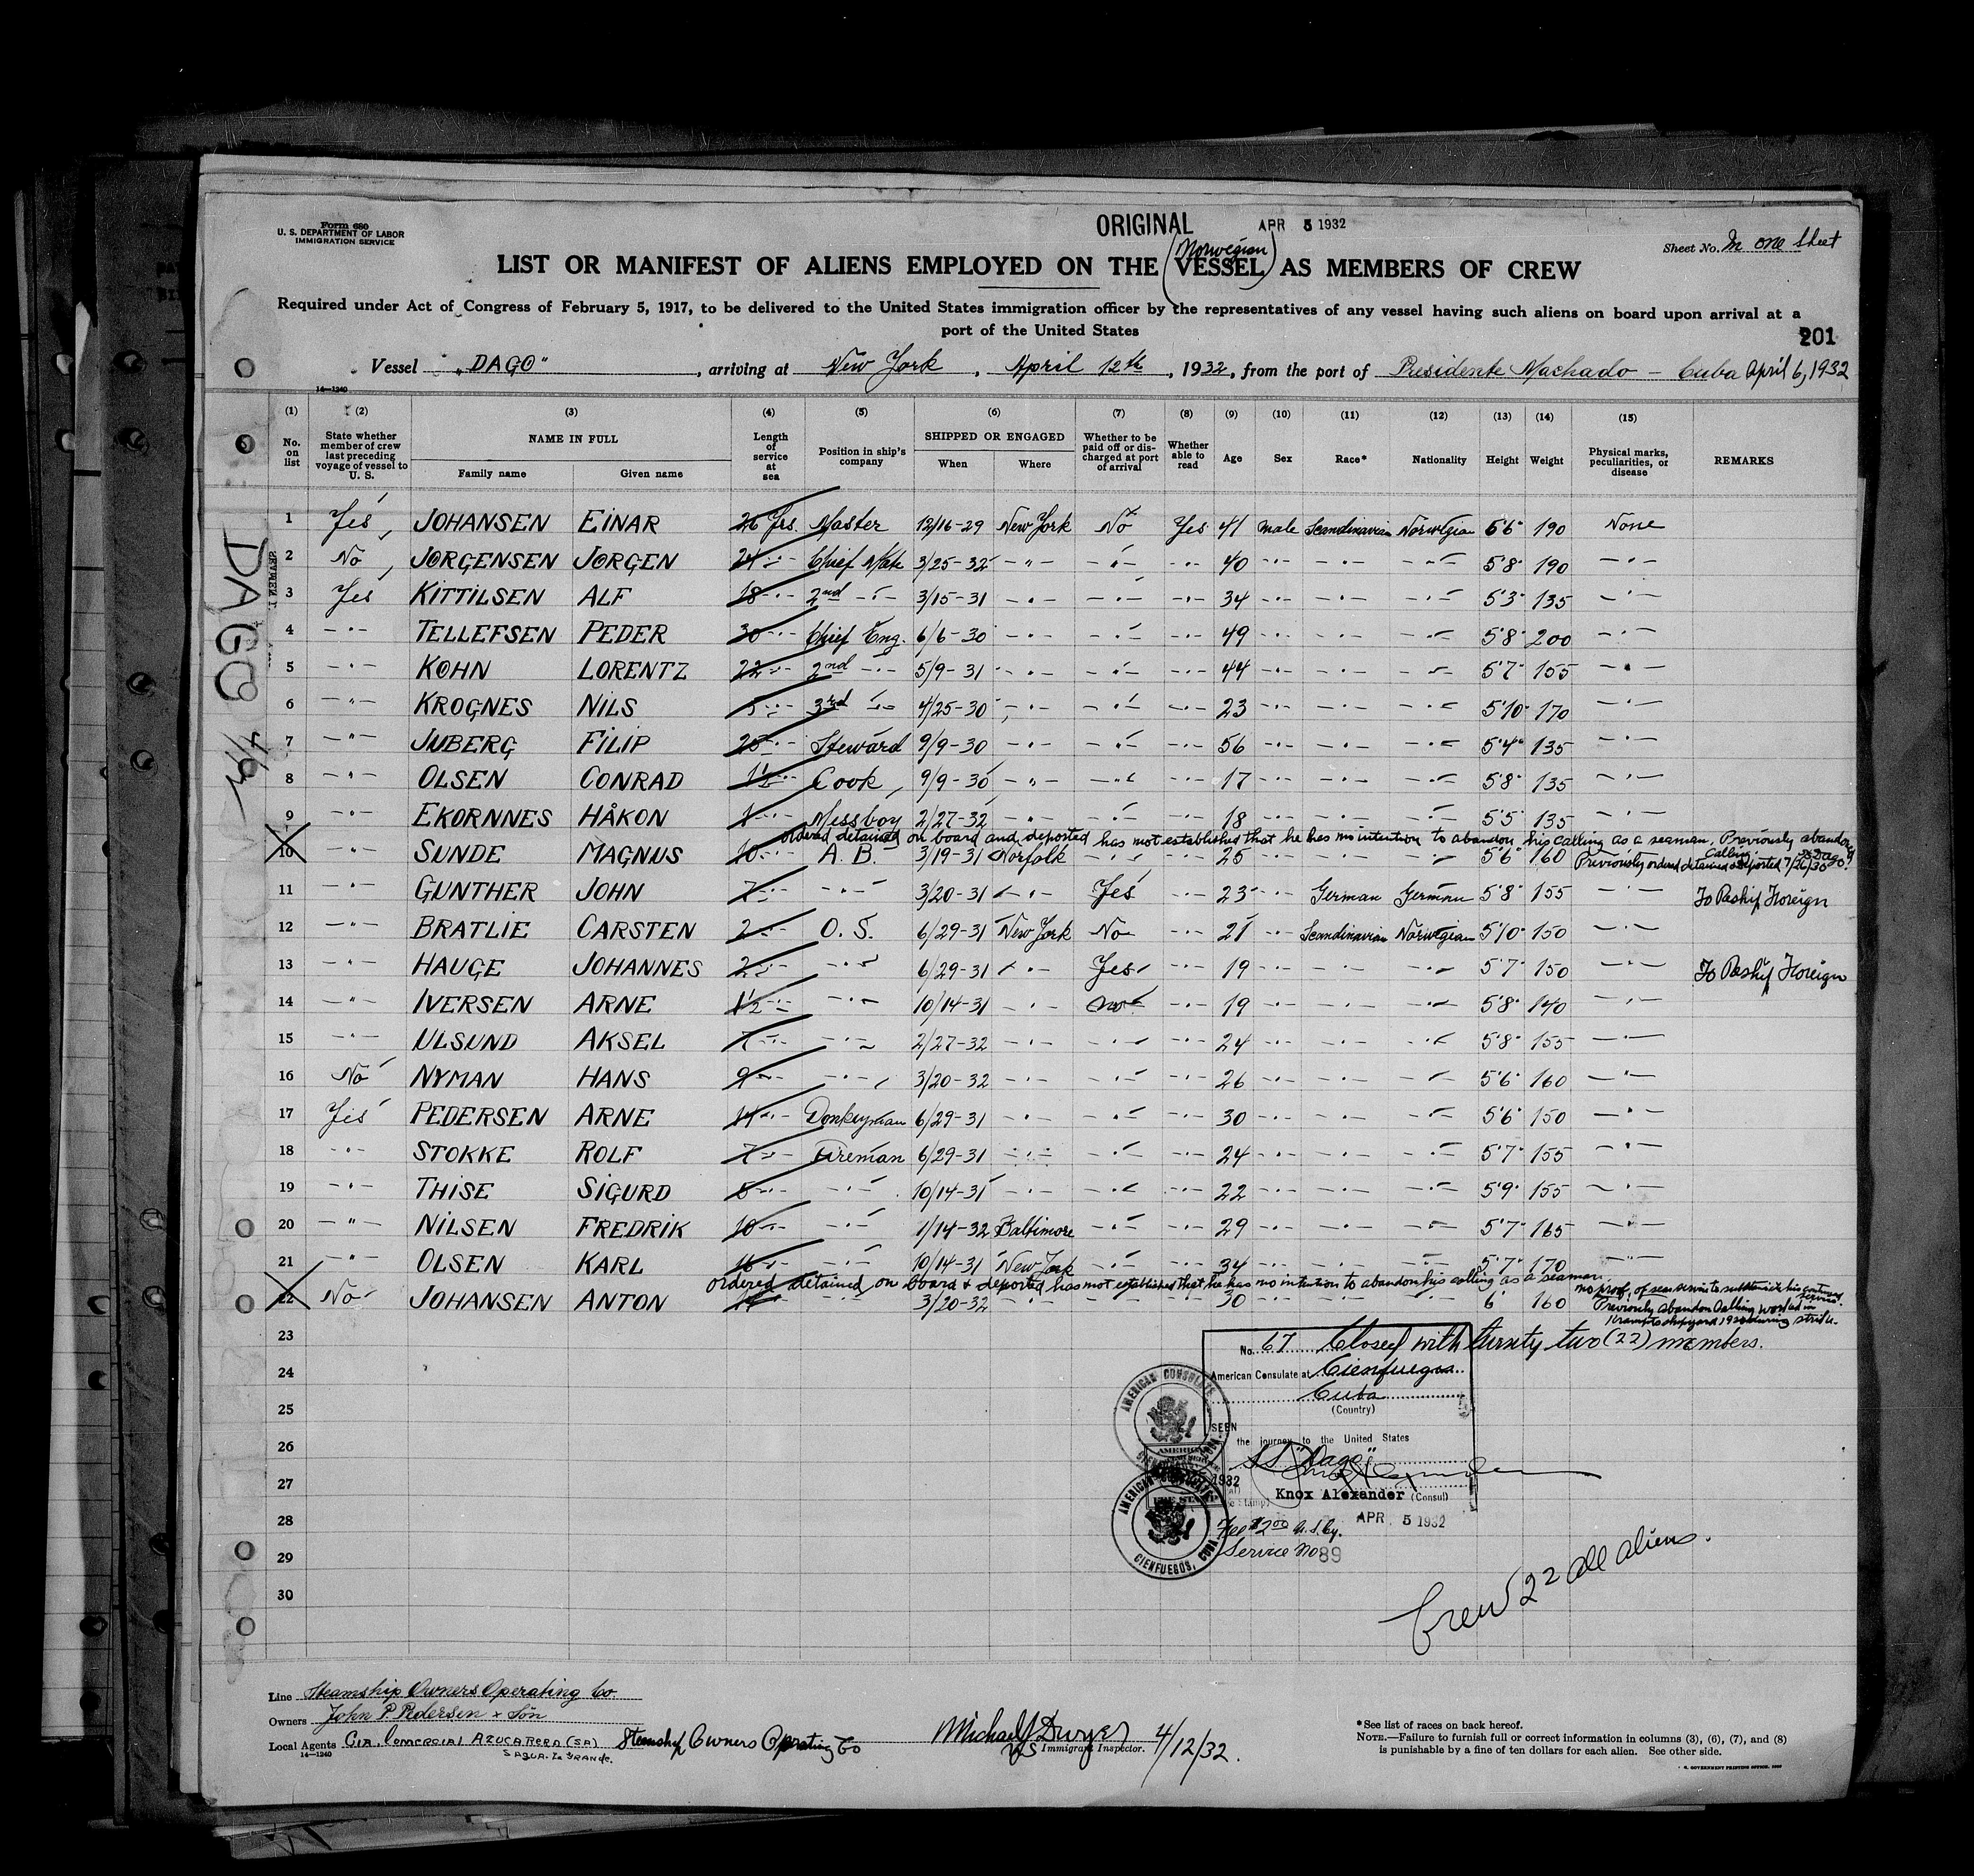 Form 680
U. S. DEPARTMENT OF LABOR
IMMIGRATION SERVICE
ORIGINAL
APR 5 1932
Sheet No. In one Sheet
(Norwegian)
LIST OR MANIFEST OF ALIENS EMPLOYED ON THE VESSEL AS MEMBERS OF CREW
Required under Act of Congress of February 5, 1917, to be delivered to the United States immigration officer by the representatives of any vessel having such aliens on board upon arrival at a
port of the United States
201
Vessel "DAGO", arriving at New York, April 12th, 1932, from the port of Presidente Machado - Cuba April 6, 1932
14—1240
(1) (2) (3) (4) (5) (6) (7) (8) (9) (10) (11) (12) (13) (14) (15)
No. on list
State whether member of crew last preceding voyage of vessel to U. S.
NAME IN FULL
Family name
Given name
Length of service at sea
Position in ship's company
SHIPPED OR ENGAGED
When
Where
Whether to be paid off or discharged at port of arrival
Whether able to read
Age
Sex
Race*
Nationality
Height
Weight
Physical marks, peculiarities, or disease
REMARKS
1 Yes JOHANSEN EINAR 26 Yrs. Master 12/16-29 New York No Yes 41 male Scandinavian Norwegian 5'6" 190 None
2 No JØRGENSEN JØRGEN 24 -"- Chief Mate 3/25-32 -"- -"- -"- 40 -"- -"- -"- 5'8" 190 -"-
3 Yes KITTILSEN ALF 18 -"- 2nd -"- 3/15-31 -"- -"- -"- 34 -"- -"- -"- 5'3" 135 -"-
4 -"- TELLEFSEN PEDER 30 -"- Chief Eng. 6/6-30 -"- -"- -"- 49 -"- -"- -"- 5'8" 200 -"-
5 -"- KØHN LORENTZ 22 -"- 2nd -"- 5/9-31 -"- -"- -"- 44 -"- -"- -"- 5'7" 155 -"-
6 -"- KROGNES NILS 5 -"- 3rd -"- 4/25-30 -"- -"- -"- 23 -"- -"- -"- 5'10" 170 -"-
7 -"- JUBERG FILIP 25 -"- Steward 9/9-30 -"- -"- -"- 56 -"- -"- -"- 5'4" 135 -"-
8 -"- OLSEN CONRAD 1½ -"- Cook 9/9-30 -"- -"- -"- 17 -"- -"- -"- 5'8" 135 -"-
9 -"- EKORNNES HÅKON 1 -"- Messboy 2/27-32 -"- -"- -"- 18 -"- -"- -"- 5'5" 135 -"-
ordered detained on board and deported has not established that he has no intention to abandon his calling as a seaman. Previously abandoned
calling SS Dago
10 -"- SUNDE MAGNUS 10 -"- A. B. 3/19-31 Norfolk -"- -"- 25 -"- -"- -"- 5'6" 160 Previously ordered detained & deported 7/26/30
11 -"- GUNTHER JOHN 7 -"- -"- 3/20-31 -"- Yes -"- 23 -"- German German 5'8" 155 -"- To Reship Foreign
12 -"- BRATLIE CARSTEN 2 -"- O. S. 6/29-31 New York No -"- 21 -"- Scandinavian Norwegian 5'10" 150 -"-
13 -"- HAUGE JOHANNES 2 -"- -"- 6/29-31 -"- Yes -"- 19 -"- -"- -"- 5'7" 150 -"- To Reship Foreign
14 -"- IVERSEN ARNE 1½ -"- -"- 10/14-31 -"- No -"- 19 -"- -"- -"- 5'8" 140 -"-
15 -"- ULSUND AKSEL 7 -"- -"- 2/27-32 -"- -"- -"- 24 -"- -"- -"- 5'8" 155 -"-
16 No NYMAN HANS 9 -"- -"- 3/20-32 -"- -"- -"- 26 -"- -"- -"- 5'6" 160 -"-
17 Yes PEDERSEN ARNE 14 -"- Donkeyman 6/29-31 -"- -"- 30 -"- -"- -"- 5'6" 150 -"-
18 -"- STOKKE ROLF 7 -"- Fireman 6/29-31 -"- -"- -"- 24 -"- -"- -"- 5'7" 155 -"-
19 -"- THISE SIGURD 6 -"- -"- 10/14-31 -"- -"- -"- 22 -"- -"- -"- 5'9" 155 -"-
20 -"- NILSEN FREDRIK 10 -"- -"- 1/14-32 Baltimore -"- -"- 29 -"- -"- -"- 5'7" 165 -"-
21 -"- OLSEN KARL 16 -"- -"- 10/14-31 New York -"- -"- 34 -"- -"- -"- 5'7" 170 -"-
ordered detained on board & deported has not established that he has no intention to abandon his calling as a seaman.
no proof of sea service to substantiate his continued service.
22 No JOHANSEN ANTON 14 3/20-32 -"- -"- -"- 30 -"- -"- -"- 6' 160 Previously abandon calling worked in
shipyard during strike.
23
24
25
26
27
28
29
30
Closed with twenty two (22) members.
No. 67
American Consulate at Cienfuegos
Cuba
(Country)
SEEN
the journey to the United States
SS "Dago"
1932
Knox Alexander (Consul)
APR 5 1932
Fee $2.00 U.S.Cy.
Service No 89
AMERICAN CONSULATE
CIENFUEGOS, CUBA
Crew 22 all aliens.
DAGO 4/12
Line Steamship Owners Operating Co
Owners John P. Pedersen & Son
Local Agents Cia. Comercial Azucarera (SA)
Sagua La Grande.
Steamship Owners Operating Co
14—1240
Michael J Dwyer
US Immigrant Inspector. 4/12/32.
*See list of races on back hereof.
NOTE.—Failure to furnish full or correct information in columns (3), (6), (7), and (8)
is punishable by a fine of ten dollars for each alien. See other side.
U. S. GOVERNMENT PRINTING OFFICE